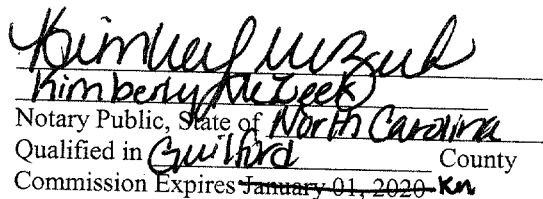 Kimberly McZeek
Kimberly McZeek
Notary Public, State of North Carolina
Qualified in Guilford County
Commission Expires January 01, 2020 Km